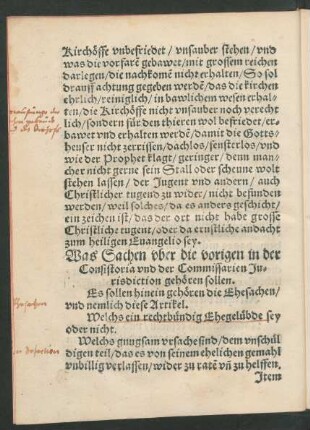 Kirchösse vnbefriedet / vnsauber stehen / vnd
was die vorfarē gebawet / mit grossem reichen
darlegen / die nachkomē nicht erhalten / So sol
drauff achtung gegeben werdē / das die kirchen
ehrlich / reiniglich / in bawlichem wesen erhal-
ten / die Kirchösse nicht vnsauber noch verecht
lich / sondern für den thieren wol befriedet / er-
bawet vnd erhalten werdē / damit die Gotts-
heuser nicht zerrissen / dachlos / fensterlos / vnd
wie der Prophet klagt / geringer / denn man-
cher nicht gerne sein Stall oder scheune wolt
stehen lassen / der Jugent vnd andern / auch
Christlicher tugend zu wider / nicht befunden
werden / weil solches / da es anders geschicht /
ein zeichen ist / das der ort nicht habe grosse
Christliche tugent / oder da ernstliche andacht
zum heiligen Euangelio sey.
Was Sachen vber die vorigen in der
Consistoria vnd der Commissarien Ju-
risdiction gehören sollen.
Es sollen hinein gehören die Ehesachen /
vnd nemlich diese Artikel.
Welchs ein rechtbündig Ehegelübde sey
oder nicht.
Welchs gnugsam vrsache sind / dem vnschül
digen teil / das es von seinem ehelichen gemahl
vnbillig verlassen / wider zu ratē vñ zu helffen.
Item